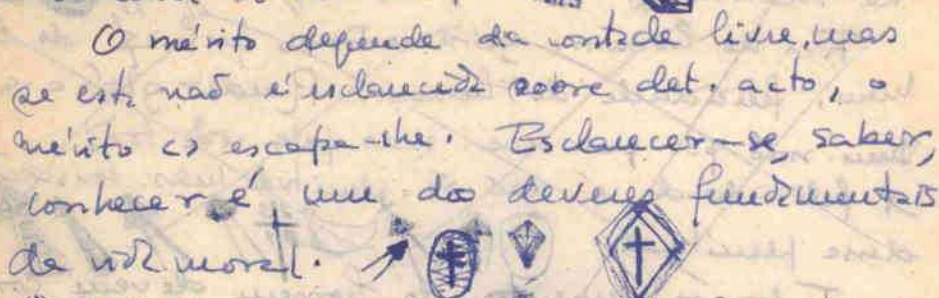 O mérito depende da vontade livre, mas
se esta não é esclarecida sobre det. acto, o
mérito escapa-lhe. Esclarecer-se, saber,
conhecer é um dos deveres fundamentais
da vida moral.